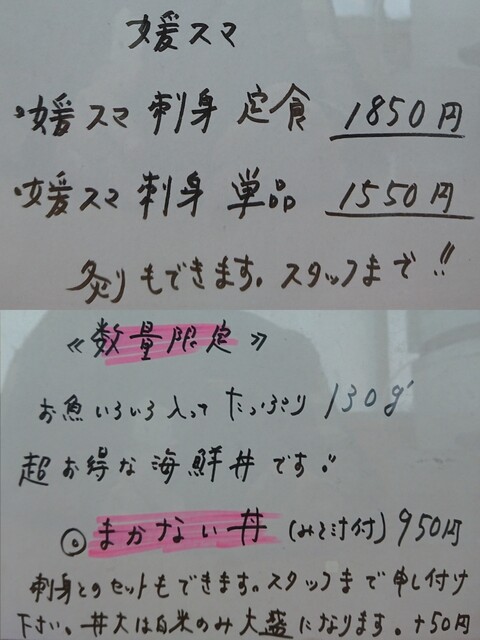 媛スマ
媛スマ 刺身 定食 1850円
媛スマ 刺身 単品 1550円
炙りもできます。スタッフまで!!
《数量限定》
お魚いろいろ入って たっぷり 130g
超お得な海鮮丼です!!
◎まかない丼 (みそ汁付) 950円
刺身とのセットもできます。スタッフまで申し付け
下さい。丼大は白米のみ大盛になります。+50円